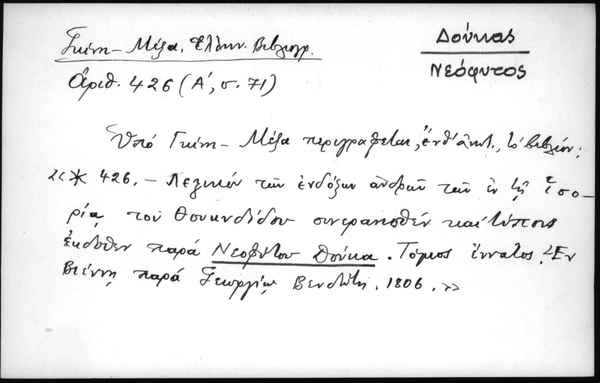 Γκίνη - Μέξα, Ἑλλην. Βιβλιογρ.
Δούκας
Νεόφυτος
Ἀριθ. 426 (Α', σ. 71)
Ὑπό Γκίνη - Μέξα περιγράφεται, ἔνθ' ἀνωτ., τό βιβλίον:
«* 426. - Λεξικόν τῶν ἐνδόξων ἀνδρῶν τῶν ἐν τῇ Ἱστο-
ρίᾳ τοῦ Θουκυδίδου συνερανισθέν καί τύποις
ἐκδοθέν παρά Νεοφύτου Δούκα. Τόμος ἔννατος. Ἐν
Βιέννῃ παρά Γεωργίῳ Βενδώτῃ. 1806.»